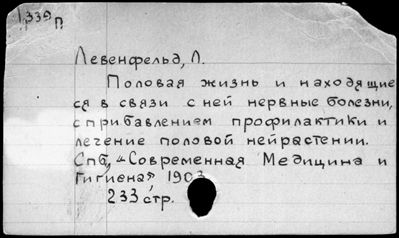 1,339 п.
Левенфельд, Л.
Половая жизнь и находящие
ся в связи с ней нервные болезни,
с прибавлением профилактики и
лечение половой нейрастении.
Спб, "Современная Медицина и
Гигиена" 1903
233 стр.